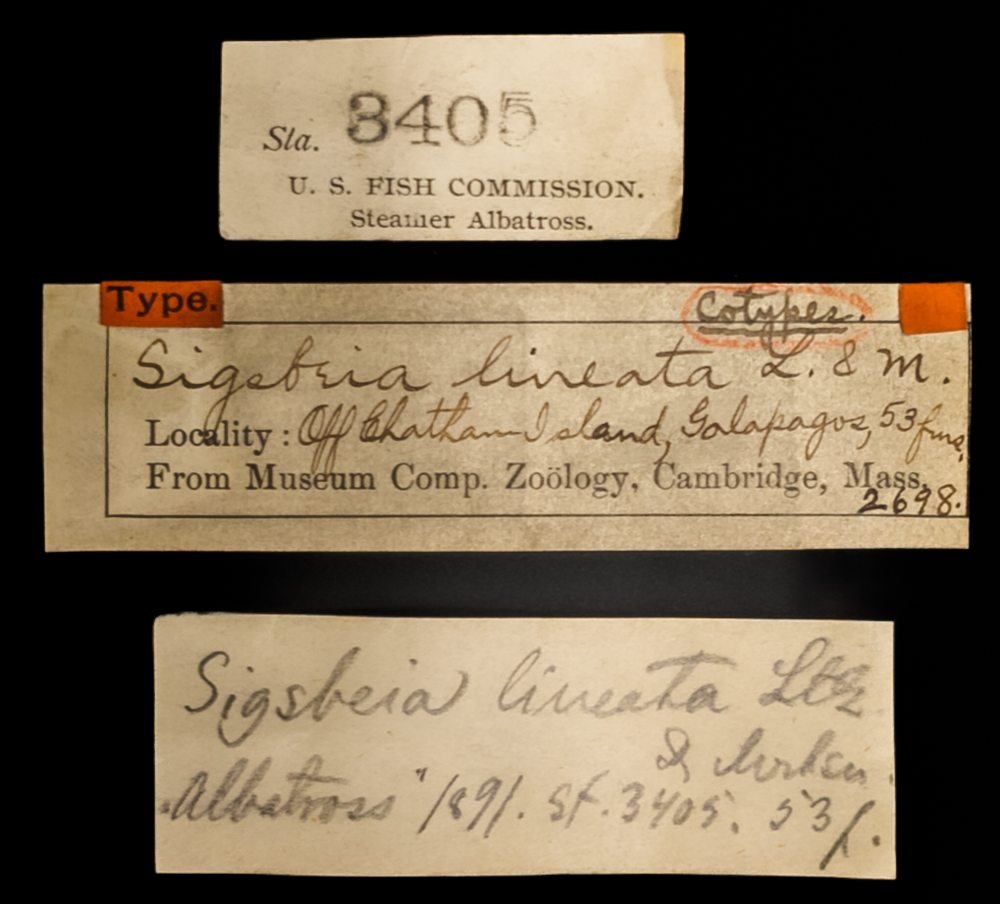 Sta. 3405
U. S. FISH COMMISSION.
Steamer Albatross.
Type.
Cotypes.
Sigsbeia lineata L. & M.
Locality: Off Chatham Island, Galapagos, 53 fms.
From Museum Comp. Zoölogy, Cambridge, Mass.
2698.
Sigsbeia lineata Ltk
&
Albatross" 1891. St. 3405. 53 f.